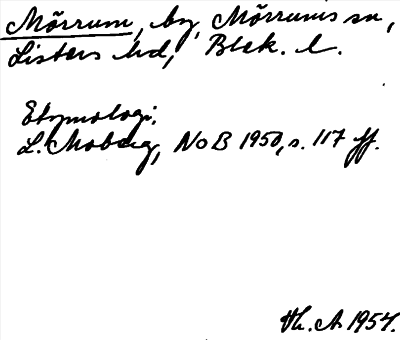 Mörrum, by, Mörrums sn,
Listers hd, Blek. l.
Etymologi:
L. Moberg, NoB 1950, s. 117 ff.
Th. A 1954.